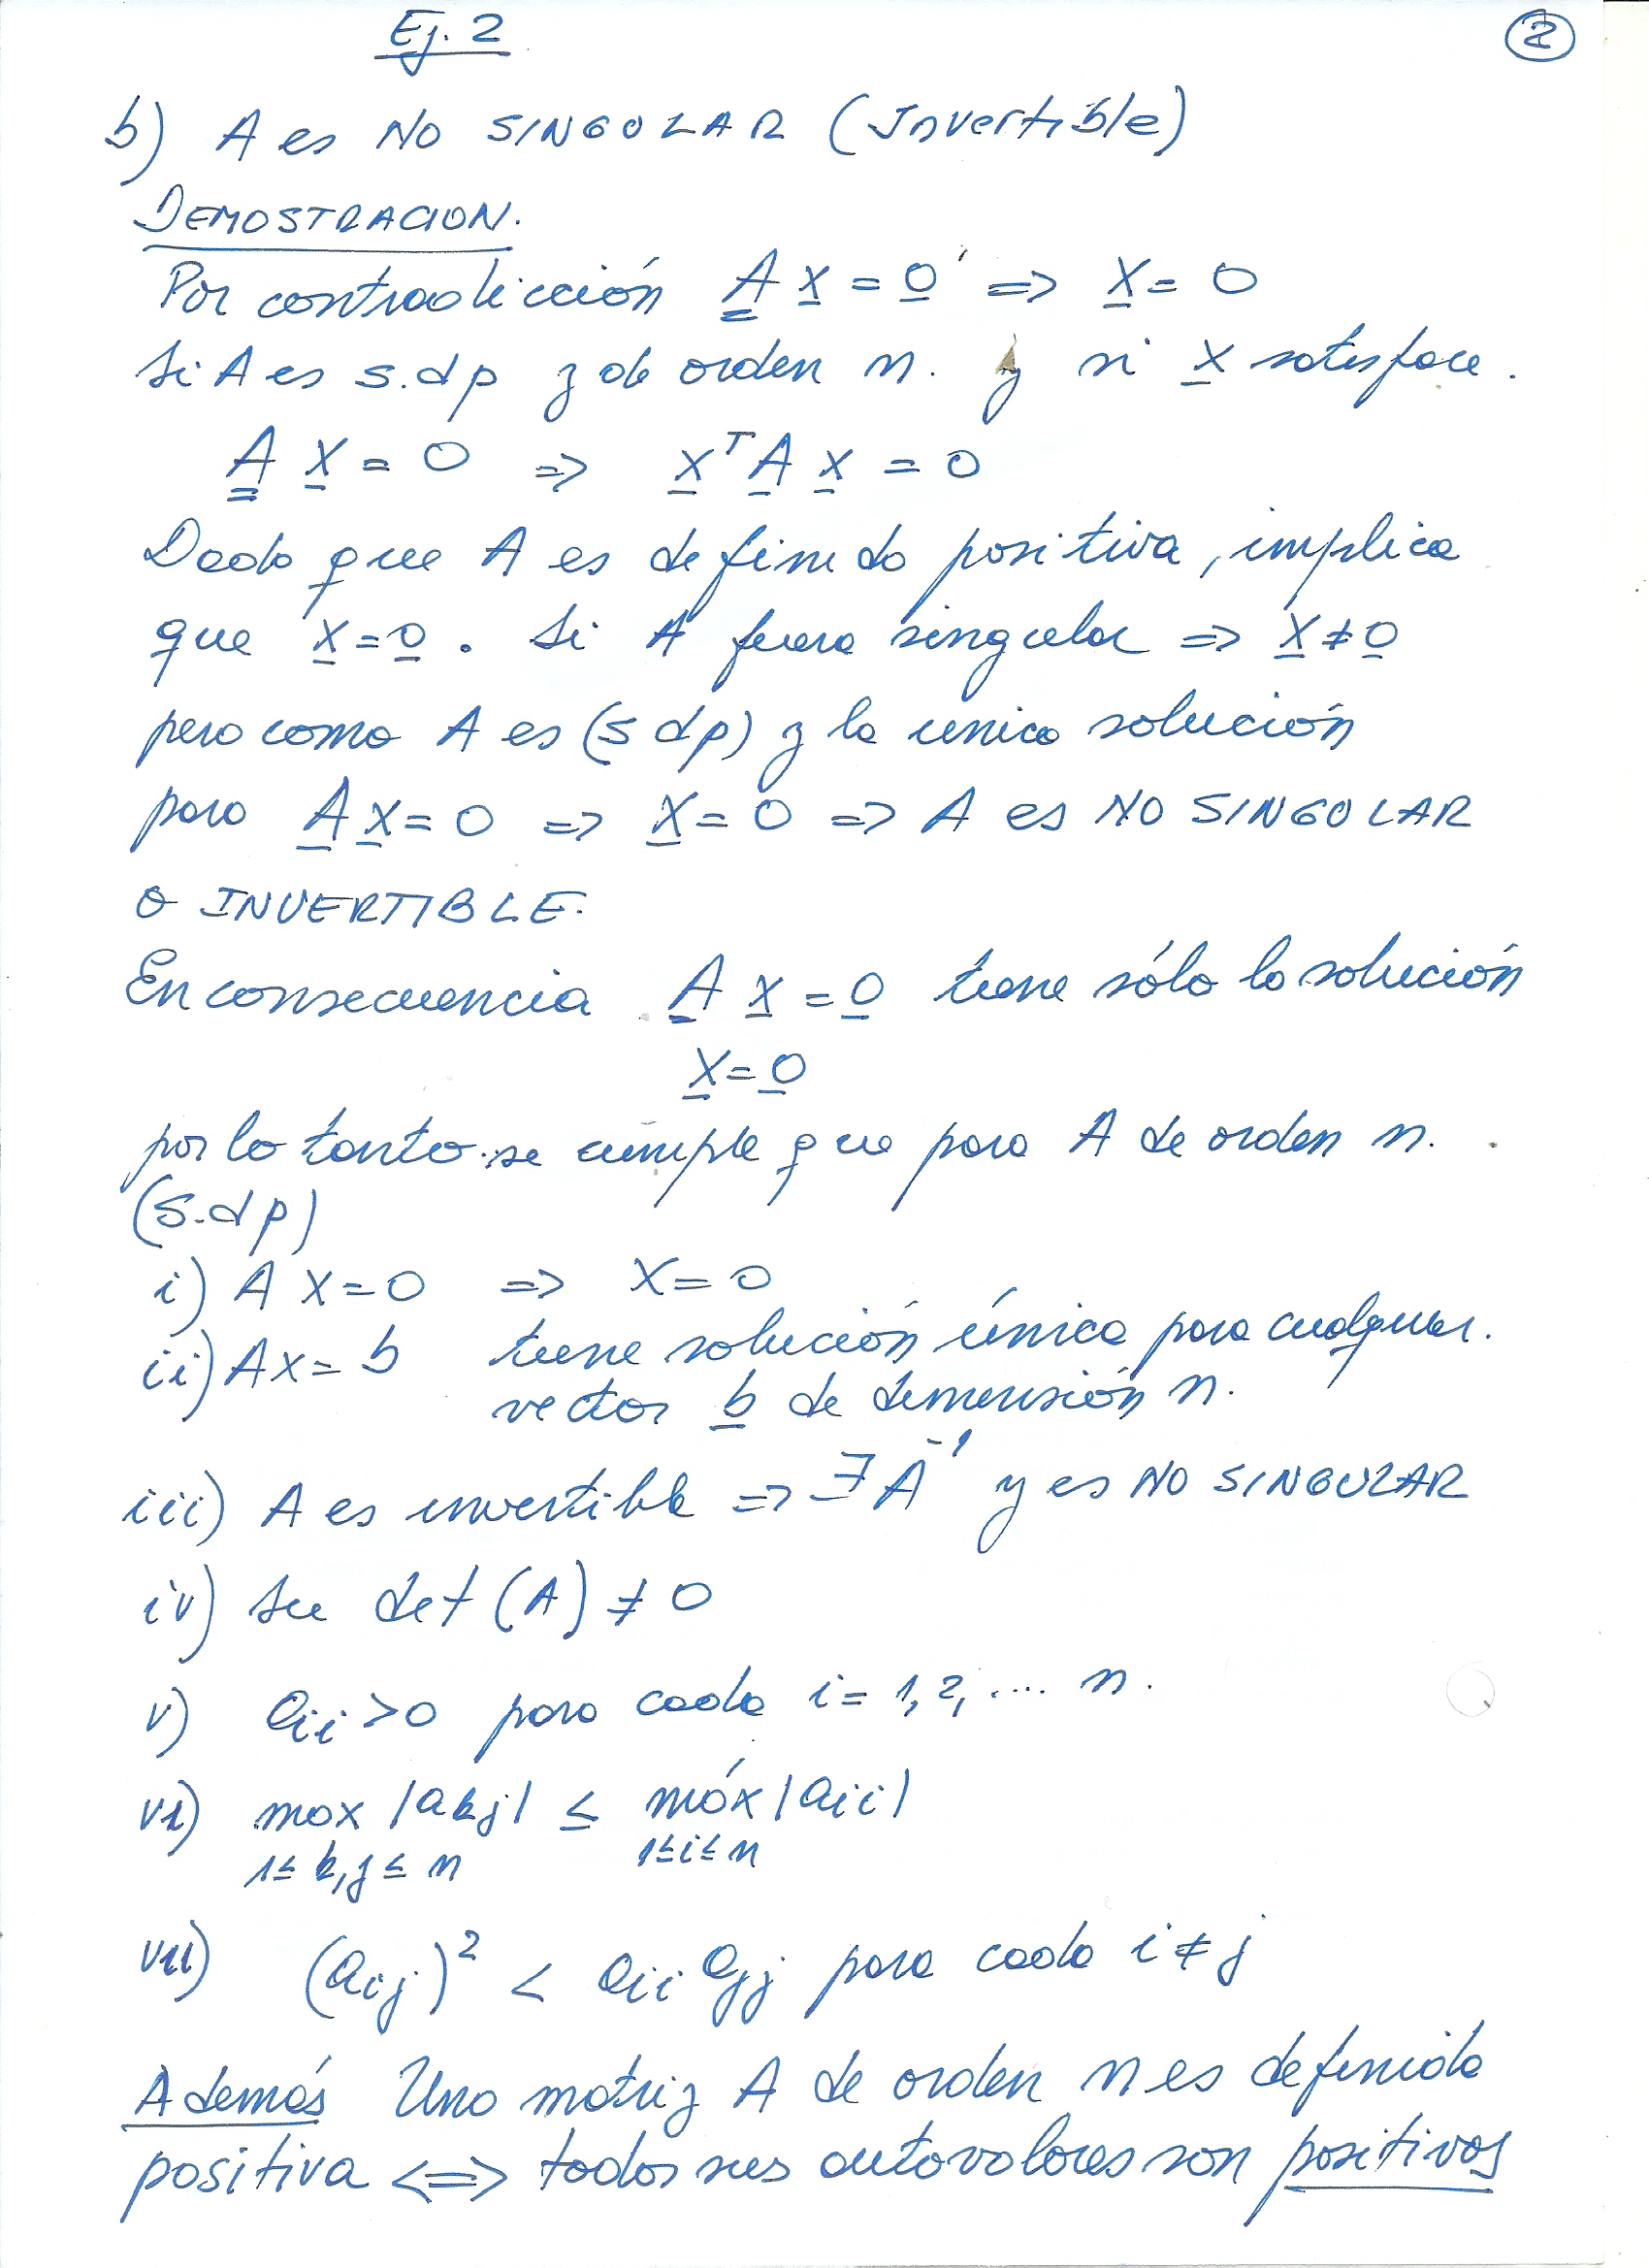 Ej. 2
2
b) A es NO SINGULAR (Invertible)
DEMOSTRACION.
Por contradicción A x = 0 => x = 0
Si A es s.dp y de orden n. y si x satisface.
A x = 0 => x^T A x = 0
Dado que A es definida positiva, implica
que x = 0. Si A fuera singular => x ≠ 0
pero como A es (s dp) y la única solución
para A x = 0 => x = 0 => A es NO SINGULAR
O INVERTIBLE.
En consecuencia A x = 0 tiene sólo la solución
x = 0
por lo tanto se cumple que para A de orden n.
(s.dp)
i) A x = 0 => x = 0
ii) A x = b tiene solución única para cualquier.
vector b de dimensión n.
iii) A es invertible => ∃ A^-1 y es NO SINGULAR
iv) Su det (A) ≠ 0
v) aii > 0 para cada i = 1, 2, .... n.
vi) max |akj| ≤ máx |aii|
1≤ k,j ≤ n 1≤i≤n
vii) (aij)^2 < aii ajj para cada i ≠ j
Además Una matriz A de orden n es definida
positiva <=> todos sus autovalores son positivos